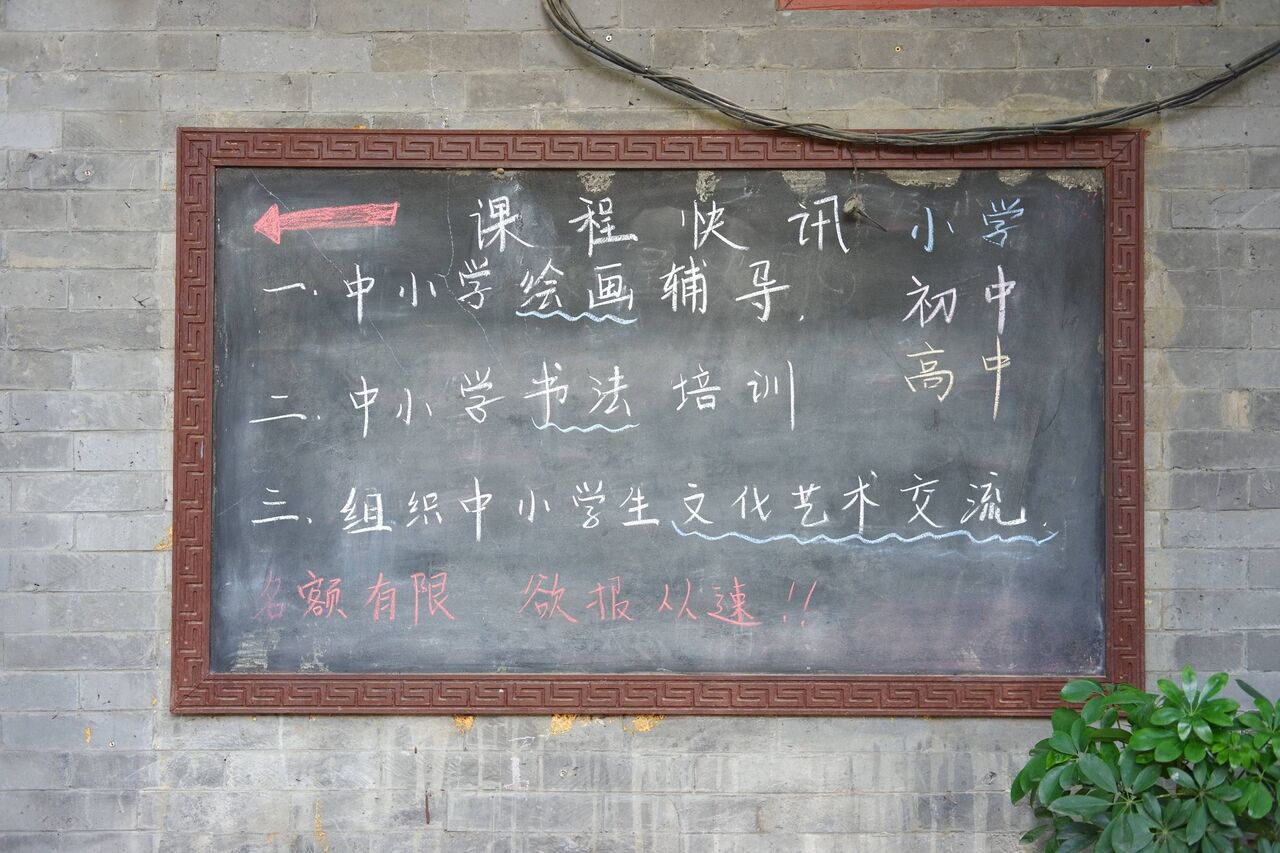 课程快讯 小学
一.中小学绘画辅导. 初中
二.中小学书法培训 高中
三.组织中小学生文化艺术交流.
名额有限 欲报从速!!